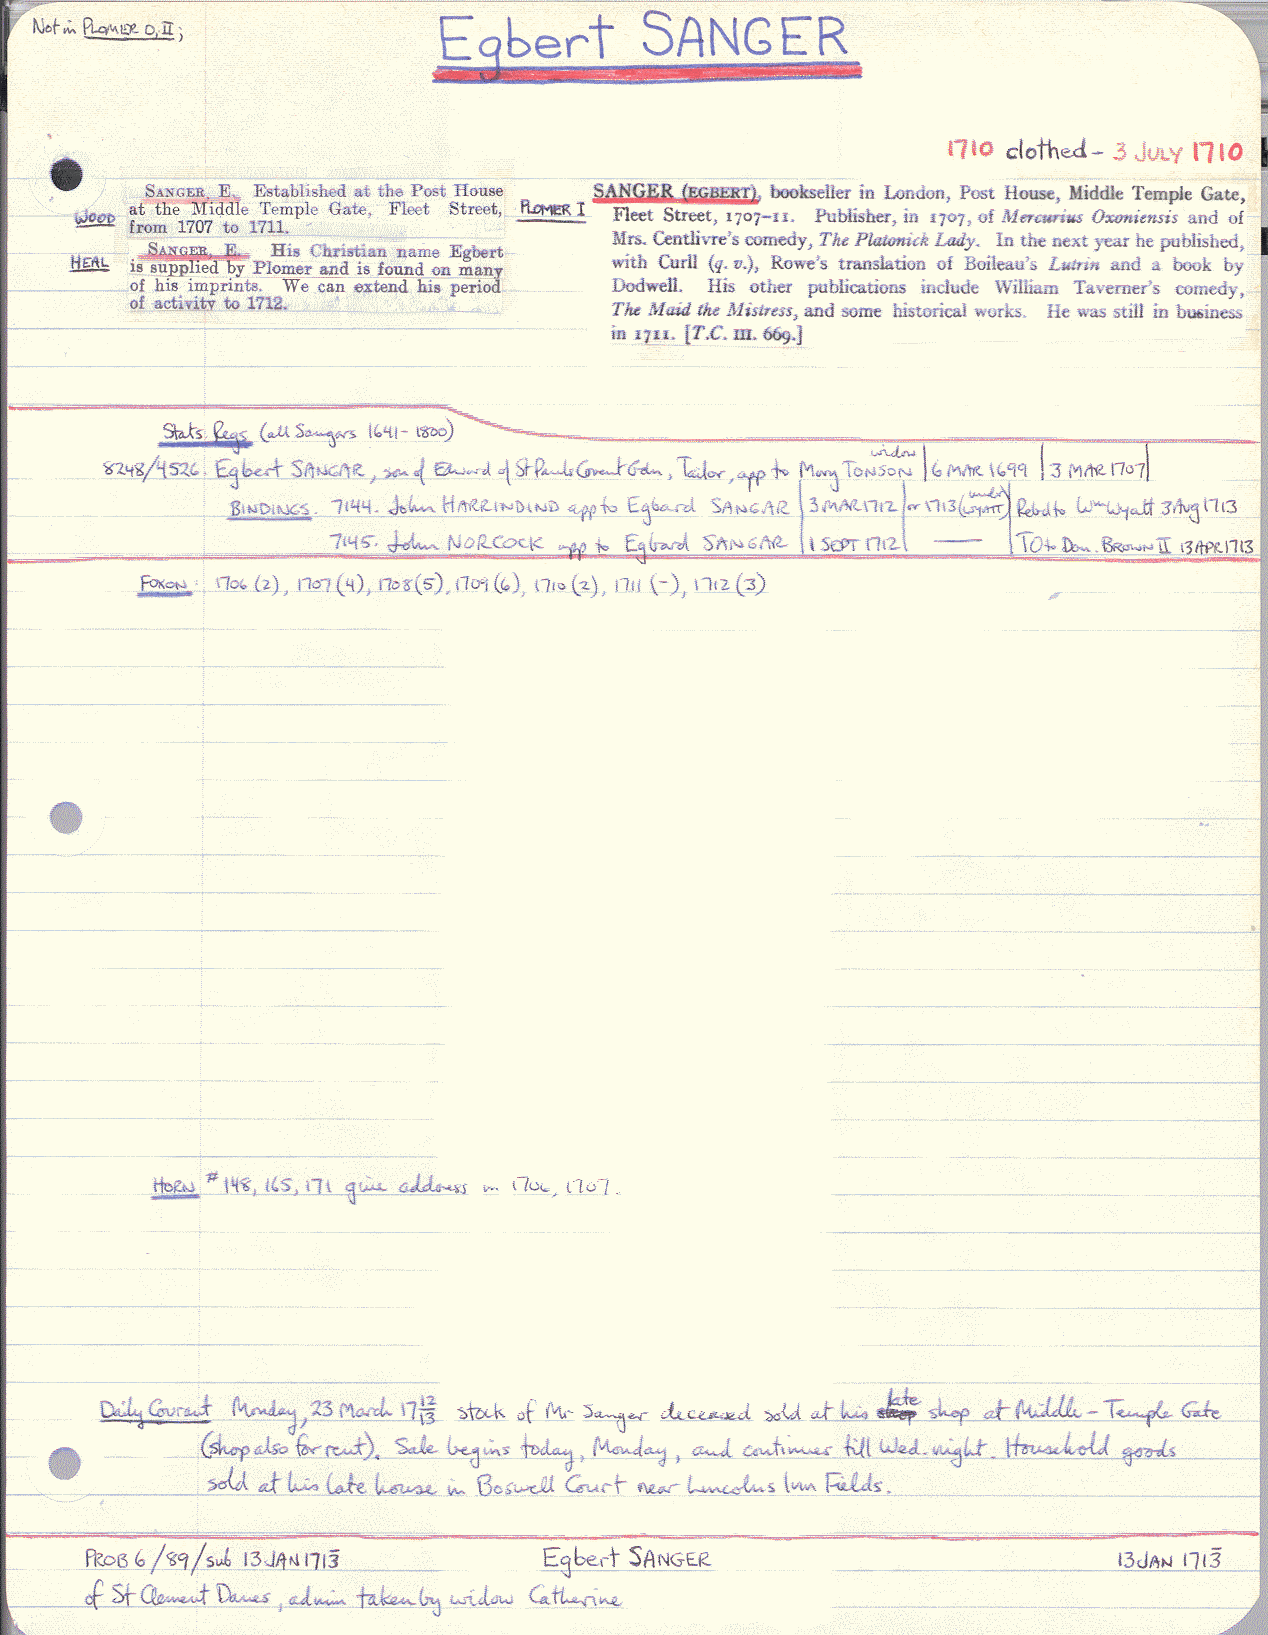 Not in PLOMER O, II;
Egbert SANGER
1710 clothed - 3 JULY 1710
WOOD
SANGER, E. Established at the Post House
at the Middle Temple Gate, Fleet Street,
from 1707 to 1711.
HEAL
SANGER, E. His Christian name Egbert
is supplied by Plomer and is found on many
of his imprints. We can extend his period
of activity to 1712.
PLOMER I
SANGER (EGBERT), bookseller in London, Post House, Middle Temple Gate,
Fleet Street, 1707–11. Publisher, in 1707, of Mercurius Oxoniensis and of
Mrs. Centlivre's comedy, The Platonick Lady. In the next year he published,
with Curll (q. v.), Rowe's translation of Boileau's Lutrin and a book by
Dodwell. His other publications include William Taverner's comedy,
The Maid the Mistress, and some historical works. He was still in business
in 1711. [T.C. III. 669.]
Stats. Regs (all Sangars 1641-1800)
8248/4526. Egbert SANGAR, son of Edward of St Pauls Covent Gdn, Tailor, app to Mary TONSON widow | 6 MAR 1699 | 3 MAR 1707 |
BINDINGS. 7144. John HARRINDIND app to Egbard SANGAR | 3 MAR 1712 | or 1713 (under WYATT) | Rebd to Wm Wyatt 3 Aug 1713
7145. John NORCOCK app to Egbard SANGAR | 1 SEPT 1712 | — | TO to Dan. BROWN II 13 APR 1713
FOXON: 1706 (2), 1707 (4), 1708 (5), 1709 (6), 1710 (2), 1711 (-), 1712 (3)
HORN # 148, 165, 171 give address in 1706, 1707.
Daily Courant Monday, 23 March 17 12/13 stock of Mr Sanger deceased sold at his late shop at Middle-Temple Gate
(shop also for rent). Sale begins today, Monday, and continues till Wed. night. Household goods
sold at his late house in Boswell Court near Lincolns Inn Fields.
PROB 6/89/sub 13 JAN 1713 Egbert SANGER 13 JAN 1713
of St Clement Danes, admin taken by widow Catherine